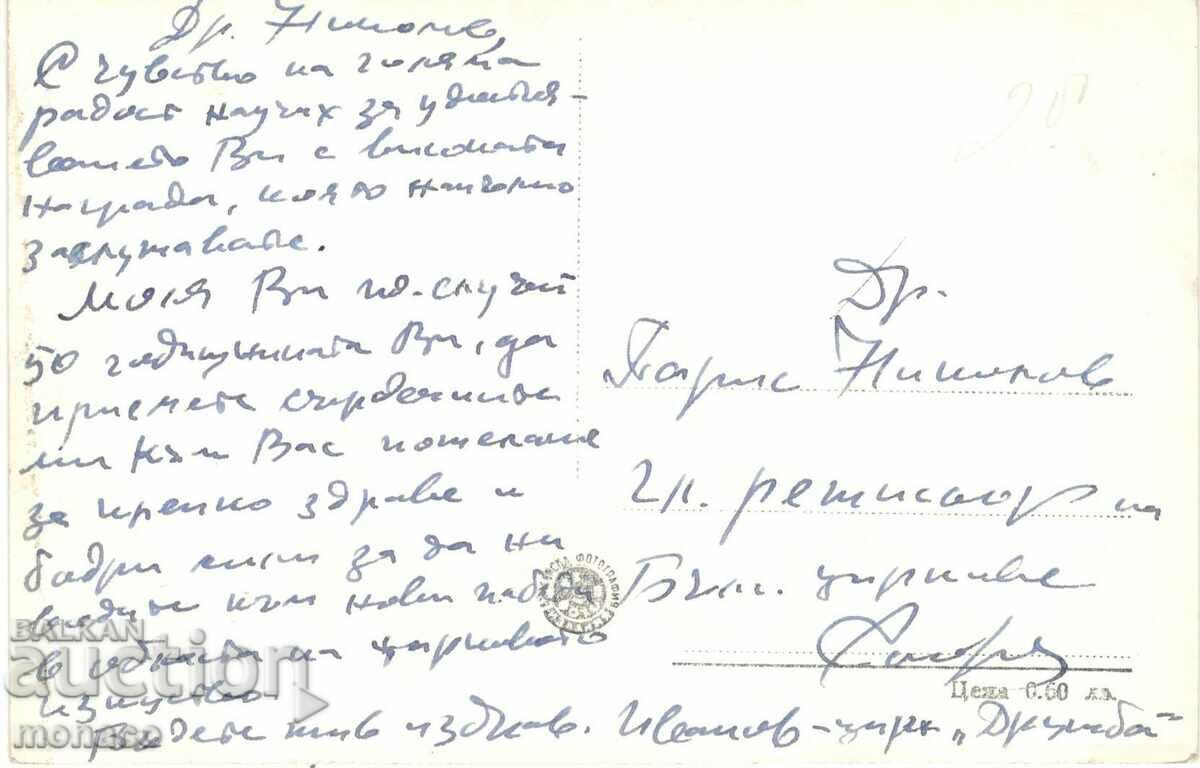 Др. Николов,
С чувство на голяма
радост научих за удостоя-
ването Ви с високата
награда, която напълно
заслужавате.
Моля Ви по-случай
50 годишнината Ви, да
приемете сърдечните
ми към Вас пожелания
за крепко здраве и
бодри сили за да ни
водите към нови победи
в областа на цирковото
изкуство.
Бъдете жив и здрав. Иванов - цирк „Дружба"
Др.
Парис Николов
Гл. режисьор на
Бълг. циркове
София
Цена 0.60 лв.
ФОТОГРАФИЯ
BALKAN
auction